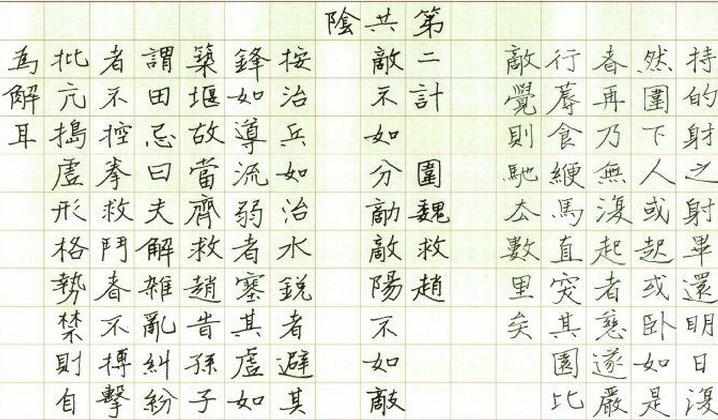 持的射之射畢還明日復
然圍下人或起或臥如是
者再乃無復起者慈遂嚴
行蓐食鞭馬直突其圍比
敵覺則馳去數里矣
第二計 圍魏救趙
共敵不如分敵敵陽不如敵
陰
按治兵如治水銳者避其
鋒如導流弱者塞其虛如
築堰故當齊救趙旹孫子
謂田忌曰夫解雜亂糾紛
者不控拳救鬥者不搏擊
批亢搗虛形格勢禁則自
為解耳